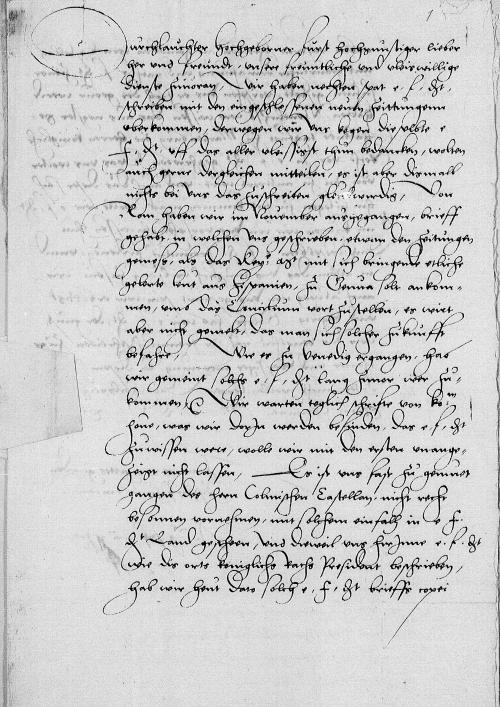 1
Durchlauchter Hochgeborner furst hochgunstiger lieber
her und freundt, unsere freuntliche und vleiswillige
dienste zuvoran, Wir haben nechten spat e. f. dt.
schreiben mit den eingeschlossenen neuen zeittungenn
uberkommen, derwegen wir uns kegen dieselbte e
f. dt. uff das aller vleissigst thun bedancken, wolten
auch gerne dergleichen mitteilen, es ist aber dismall
nichts bei uns das zuschreiben gleubwirdig, Von
Rom haben wir im November ausgegangen, brieff
gehabt, in welchen uns geschrieben, etwan den zeitungen
gemess, als das Key. mit sich bringende etliche
gelerte leut aus Hispanien, zu Genua sole ankom-
men, umb das Concilium vort zustellen, es wirt
aber nicht gemelt, das man sich solcher zukunfft
befahre, Wie es zu Venedig ergangen, hab
wir gemeint solchs e. f. dt. lang zuvor wer zu-
kommen, Wir warten teglich schriffte von
hove, was wir dorin werden befinden, das e. f. dt.
zuwissen were, wolle wir mit den ersten unange-
zeigt nicht lassen, Es ist uns fast zu gemuet
gangen des hern Colmischen Castellan, nicht recht
besonnen vornehmen, mit solchem einfall in e f.
dt. Land gescheen, Und dieweil uns hirinne e. f. dt.
wie dis orts koniglichs Rachs President beschrieben,
hab wir heut dato solch e. f. dt. brieffs copei